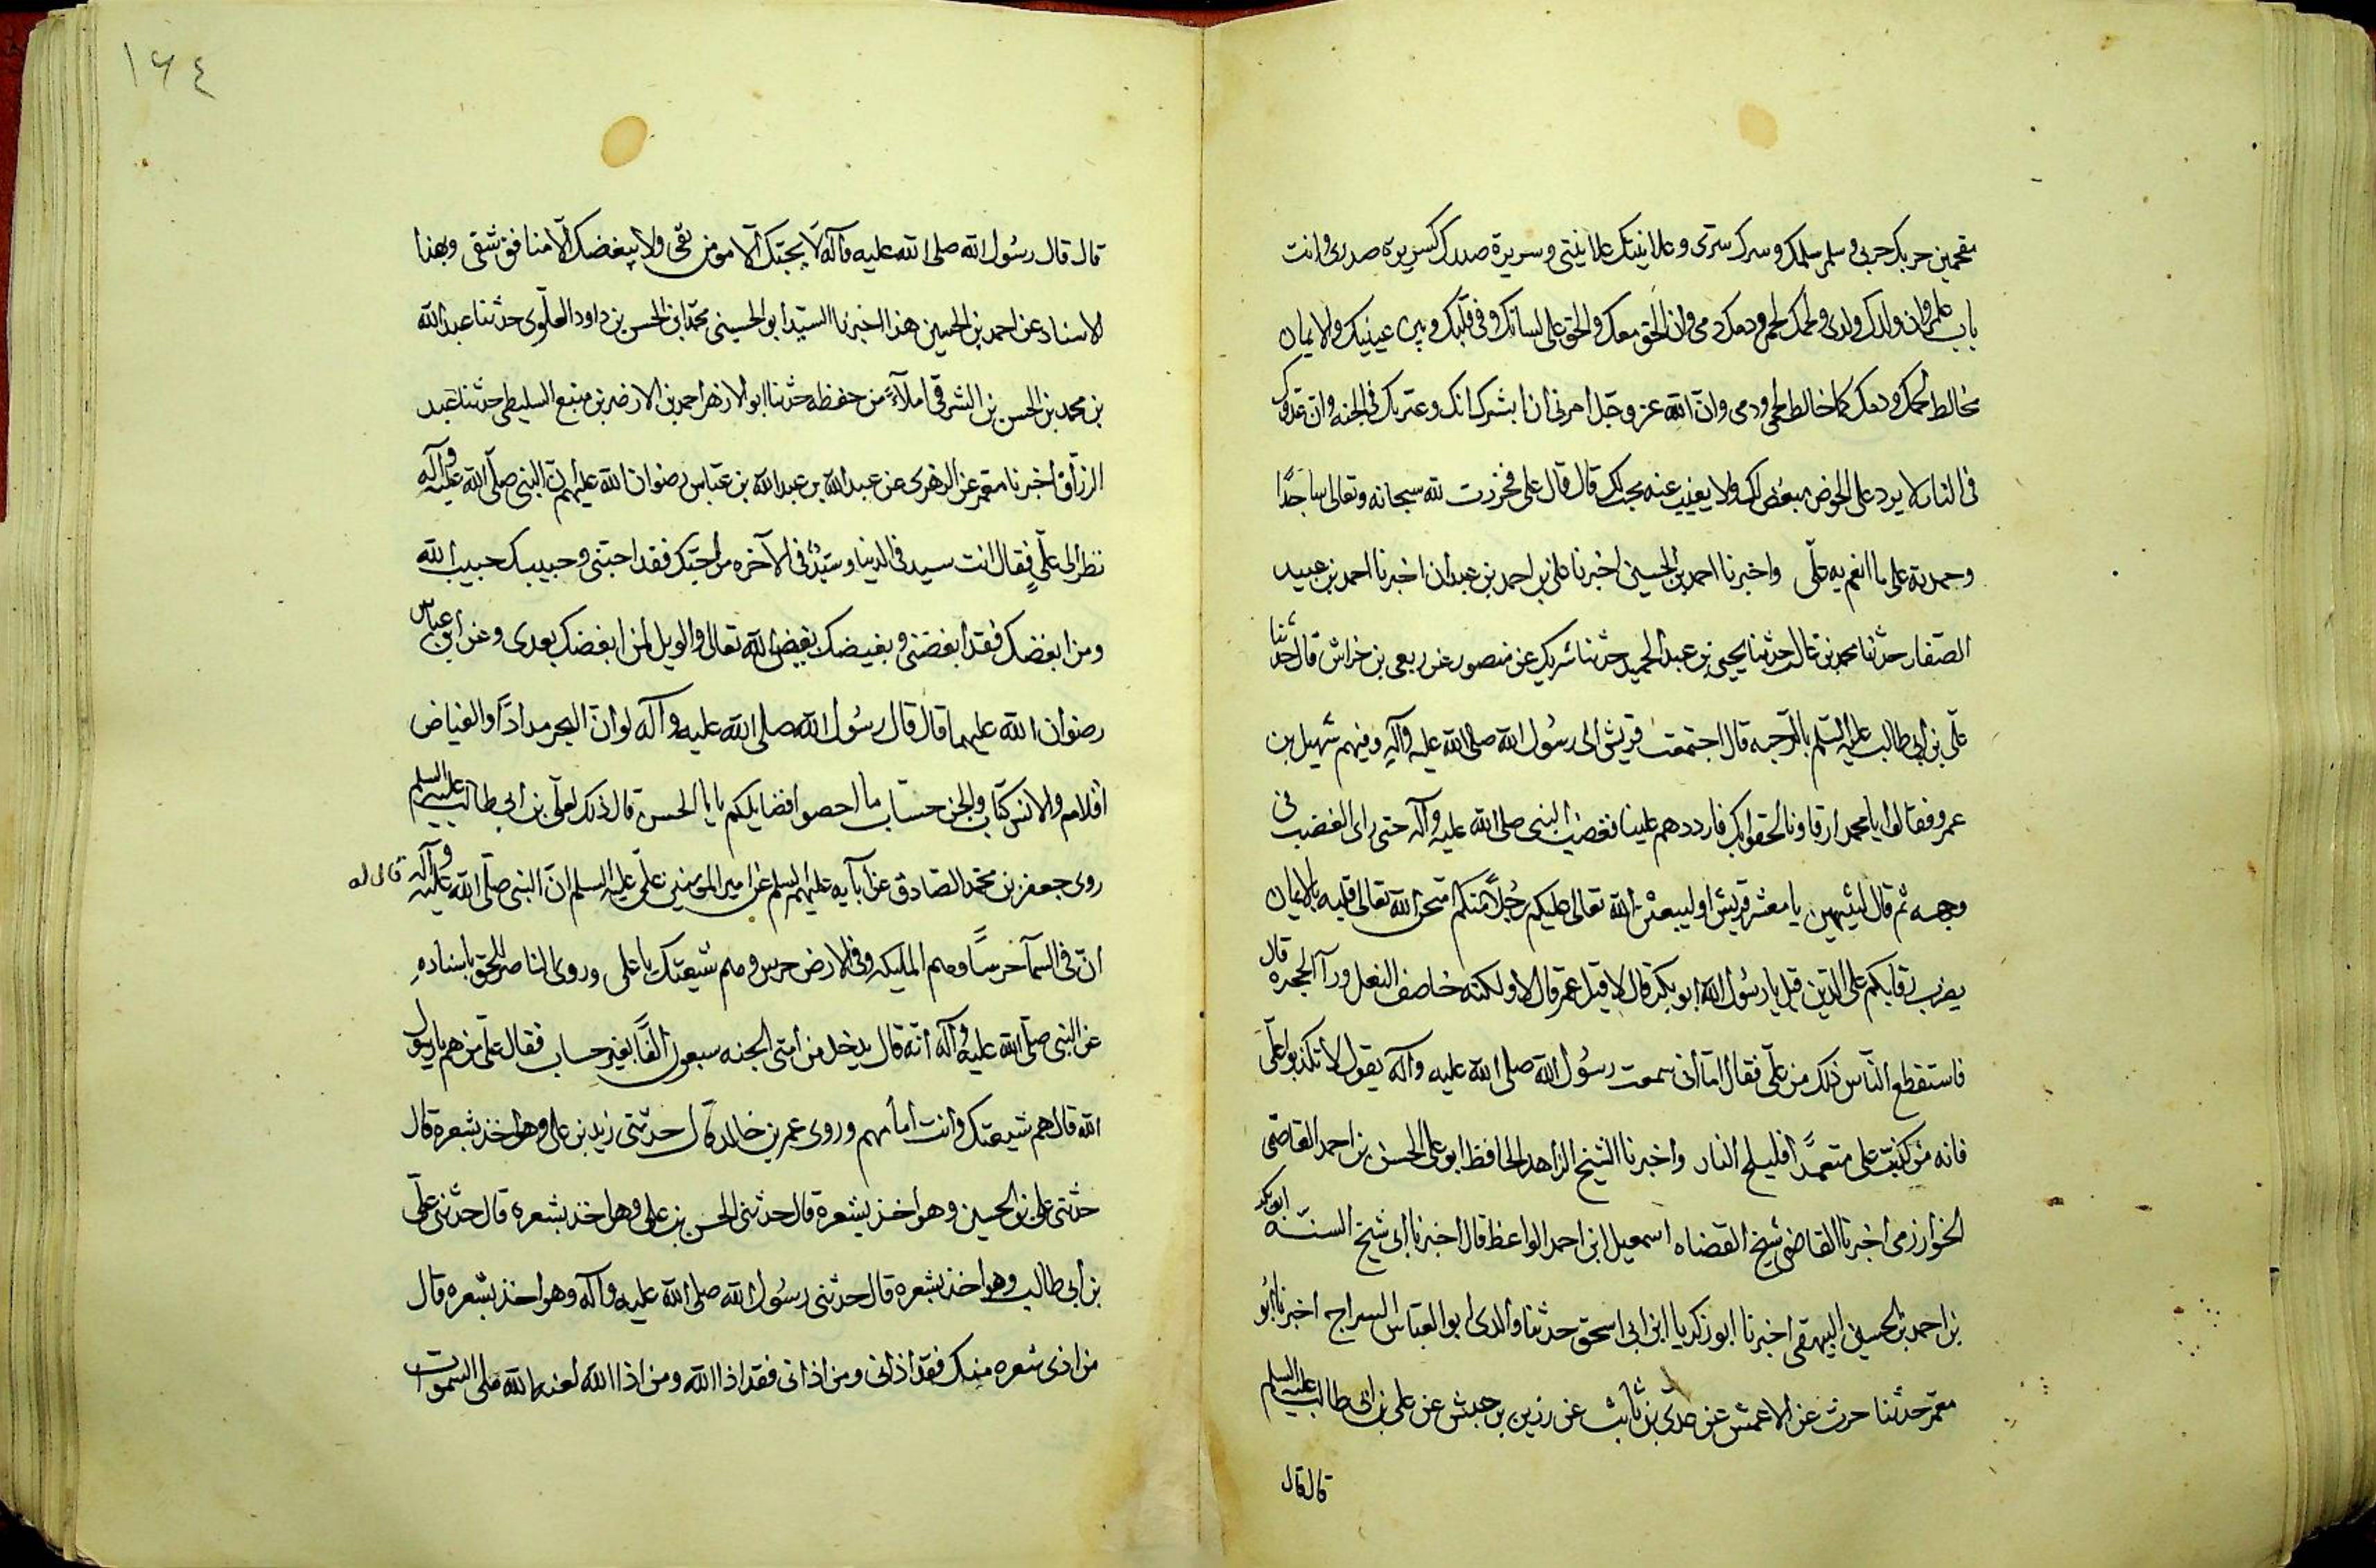 مقحمين حربك حربى وسلمى سلمك وسرك سرى وعلانيتك علانيتى وسريرة صدرك كسريرة صدرى وانت
باب علمى وان ولدك ولدى ولحمك لحمى ودمك دمى وان الحق معك والحق على لسانك وفى قلبك وبين عينيك والايمان
مخالط لحمك ودمك كما خالط لحمى ودمى وان الله عز وجل امرنى ان ابشرك انك وعترتك فى الجنه وان عدوك
فى النار لا يرد على الحوض مبغض لك ولا يغيب عنه محب لك قال قال على فخررت لله سبحانه وتعالى ساجدًا
وحمدته على ما انعم به علّى واخبرنا احمد بن الحسين اخبرنا على بن احمد بن عبدان اخبرنا احمد بن عبيد
الصّفار حدثنا محمد بن غالب حدثنا يحيى بن عبد الحميد حدثنا شريك عن منصور عن ربعى بن خراش قال حدثنا
على بن ابى طالب عليه السلم بالرحبه قال اجتمعت قريش الى رسول الله صلى الله عليه وآله وفيهم سهيل بن
عمرو فقالوا يا محمد ارقاونا لحقوا بك فارددهم علينا فغضب النبى صلى الله عليه وآله حتى راى الغضب فى
وجهه ثم قال لتنتهين يا معشر قريش او ليبعثن الله تعالى عليكم رجلًا منكم امتحن الله تعالى قلبه بالايمان
يضرب رقابكم على الدين قيل يا رسول الله ابو بكر قال لا قيل عمر قال لا ولكنه خاصف النعل ورآ الحجره قال
فاستقطع الناس ذلك من على فقال اما انى سمعت رسول الله صلى الله عليه وآله يقول لا تكذبوا علّى
فانه من كذب على متعمدًا فليلج النار واخبرنا الشيخ الزاهد الحافظ ابو على الحسن بن احمد القاضى
الخوارزمى اخبرنا القاضى شيخ القضاه اسمعيل ابن احمد الواعظ قال اخبرنا ابى شيخ السنّه ابو بكر
بن احمد بن الحسين البيهقى اخبرنا ابو زكريا ابن ابى اسحق حدثنا والدى ابو العباس السراج اخبرنا ابو
معمّر حدثنا حرث عن الاعمش عن عدى بن ثابت عن رزين بن حبش عن على بن ابى طالب عليه السلم
قال قال
١٦٤
قال قال رسول الله صلى الله عليه وآله لا يحبّك الّا مومن تقى ولا يبغضك الّا منافق شقى وبهذا
الاسناد عن احمد بن الحسين هذا اخبرنا السيّد ابو الحسينى محمّد ابن الحسن بن داود العلّوى حدثنا عبد الله
بن محمد بن الحسن بن الشرقى املآءً من حفظه حدثنا ابو الازهر احمد بن الازضر بن منبع السليطى حدثنا عبد
الرزّاق اخبرنا معمر عن الزهرى عن عبد الله بن عبد الله بن عبّاس رضوان الله عليهم انّ النبى صلّى الله عليه وآله
نظر الى علّى فقال انت سيد فى الدنيا وسيّد فى الآخره من احبّك فقد احبّنى وحبيبك حبيب الله
ومن ابغضك فقد ابغضنى وبغيضك بغيض الله تعالى والويل لمن ابغضك بعدى وعن ابن عباس
رضوان الله عليهما قال قال رسول الله صلى الله عليه وآله لو انّ البحر مدادًا والغياض
اقلام والانس كتاب والجن حسّاب ما احصوا فضايلكم يا با الحسن قال ذلك لعلّى بن ابى طالب عليه السلم
روى جعفر بن محمّد الصّادق عن آبآيه عليهم السلم عن امير المومنين علّى عليه السلم انّ النبى صلّى الله عليه وآله قال له
انّ فى السمآ حرسًا وهم المليكه وفى الارض حرس وهم شيعتك يا على وروى الناصر للحق باسناده
عن النبى صلّى الله عليه وآله انّه قال يدخل من امّتى الجنه سبعون الفًا بغير حساب فقال علّى من هم يا رسول
الله قال هم شيعتك وانت امامهم وروى عمر بن خالد قال حدثنى زيد بن على وهو اخذ بشعره قال
حدثنى على بن الحسين وهو اخذ بشعره قال حدثنى الحسن بن على وهو اخذ بشعره قال حدثنى علّى
بن ابى طالب وهو اخذ بشعره قال حدثنى رسول الله صلى الله عليه وآله وهو اخذ بشعره قال
من اذى شعره منك فقد اذانى ومن اذانى فقد اذا الله ومن اذا الله لعنه الله ملى السموات